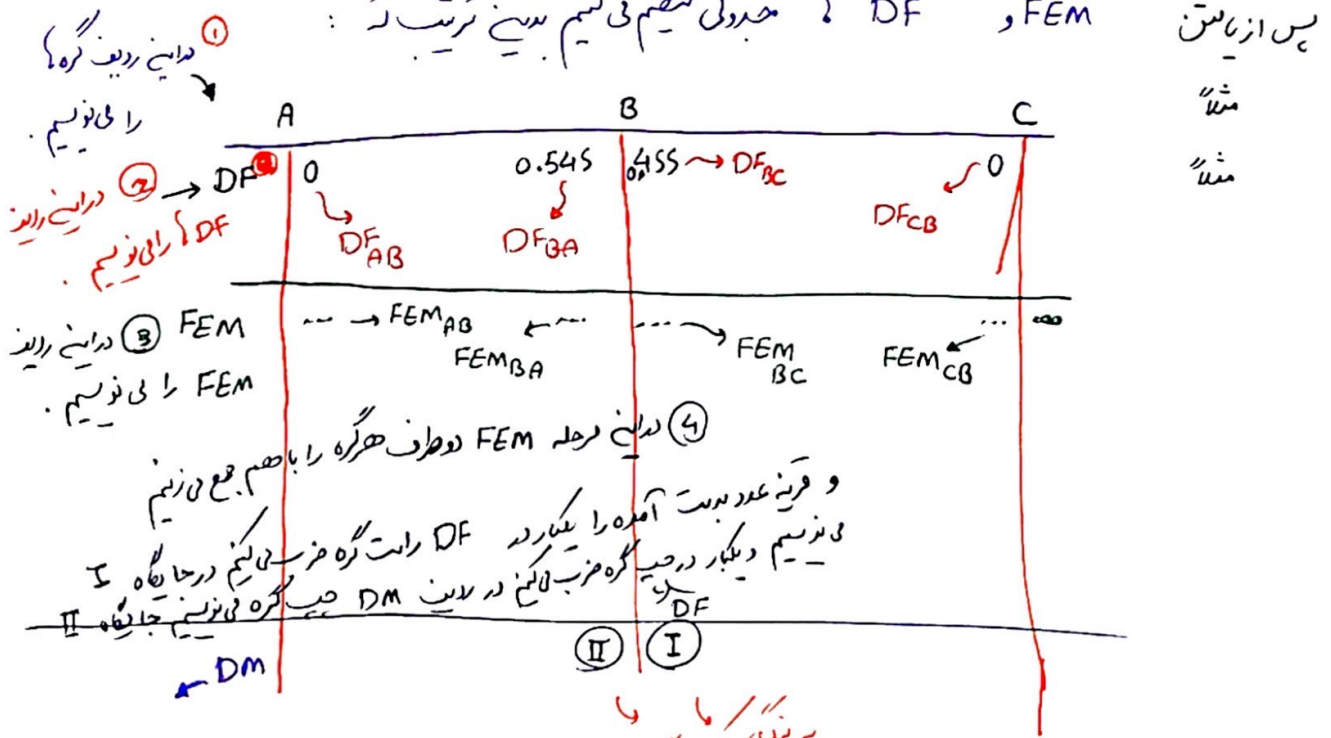 پس از یافتن FEM و DF ها جدولی تنظیم می کنیم بدین ترتیب که :
مثلاً
مثلاً
① در این ردیف گره ها
را می نویسم .
A B C
② در این ردیف
DF ها را می نویسم .
DF 0 0.545 0.455 → DF BC 0
DF AB DF BA DF CB
③ در این ردیف
FEM را می نویسم .
FEM ... → FEM AB ... ... ...
FEM BA FEM BC FEM CB
④ در این مرحله FEM دو طرف هر گره را با هم جمع می زنیم
و قرینه عدد بدست آمده را یکبار در DF راست گره ضرب می کنیم در جایگاه I
می نویسیم و یکبار در چپ گره ضرب می کنیم در ردیف DM چپ گره می نویسیم جایگاه II
DF
II I
DM